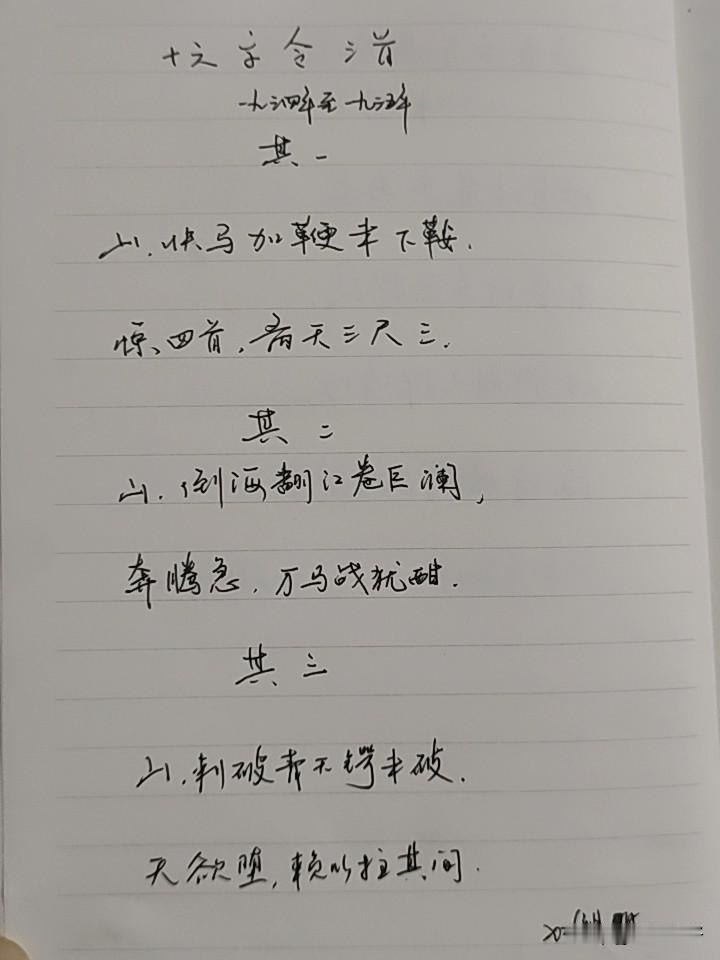 十六字令三首
一九三四年至一九三五年
其一
山.快马加鞭未下鞍.
惊回首,离天三尺三.
其二
山.倒海翻江卷巨澜,
奔腾急.万马战犹酣.
其三
山.刺破青天锷未破.
天欲堕,赖以拄其间.